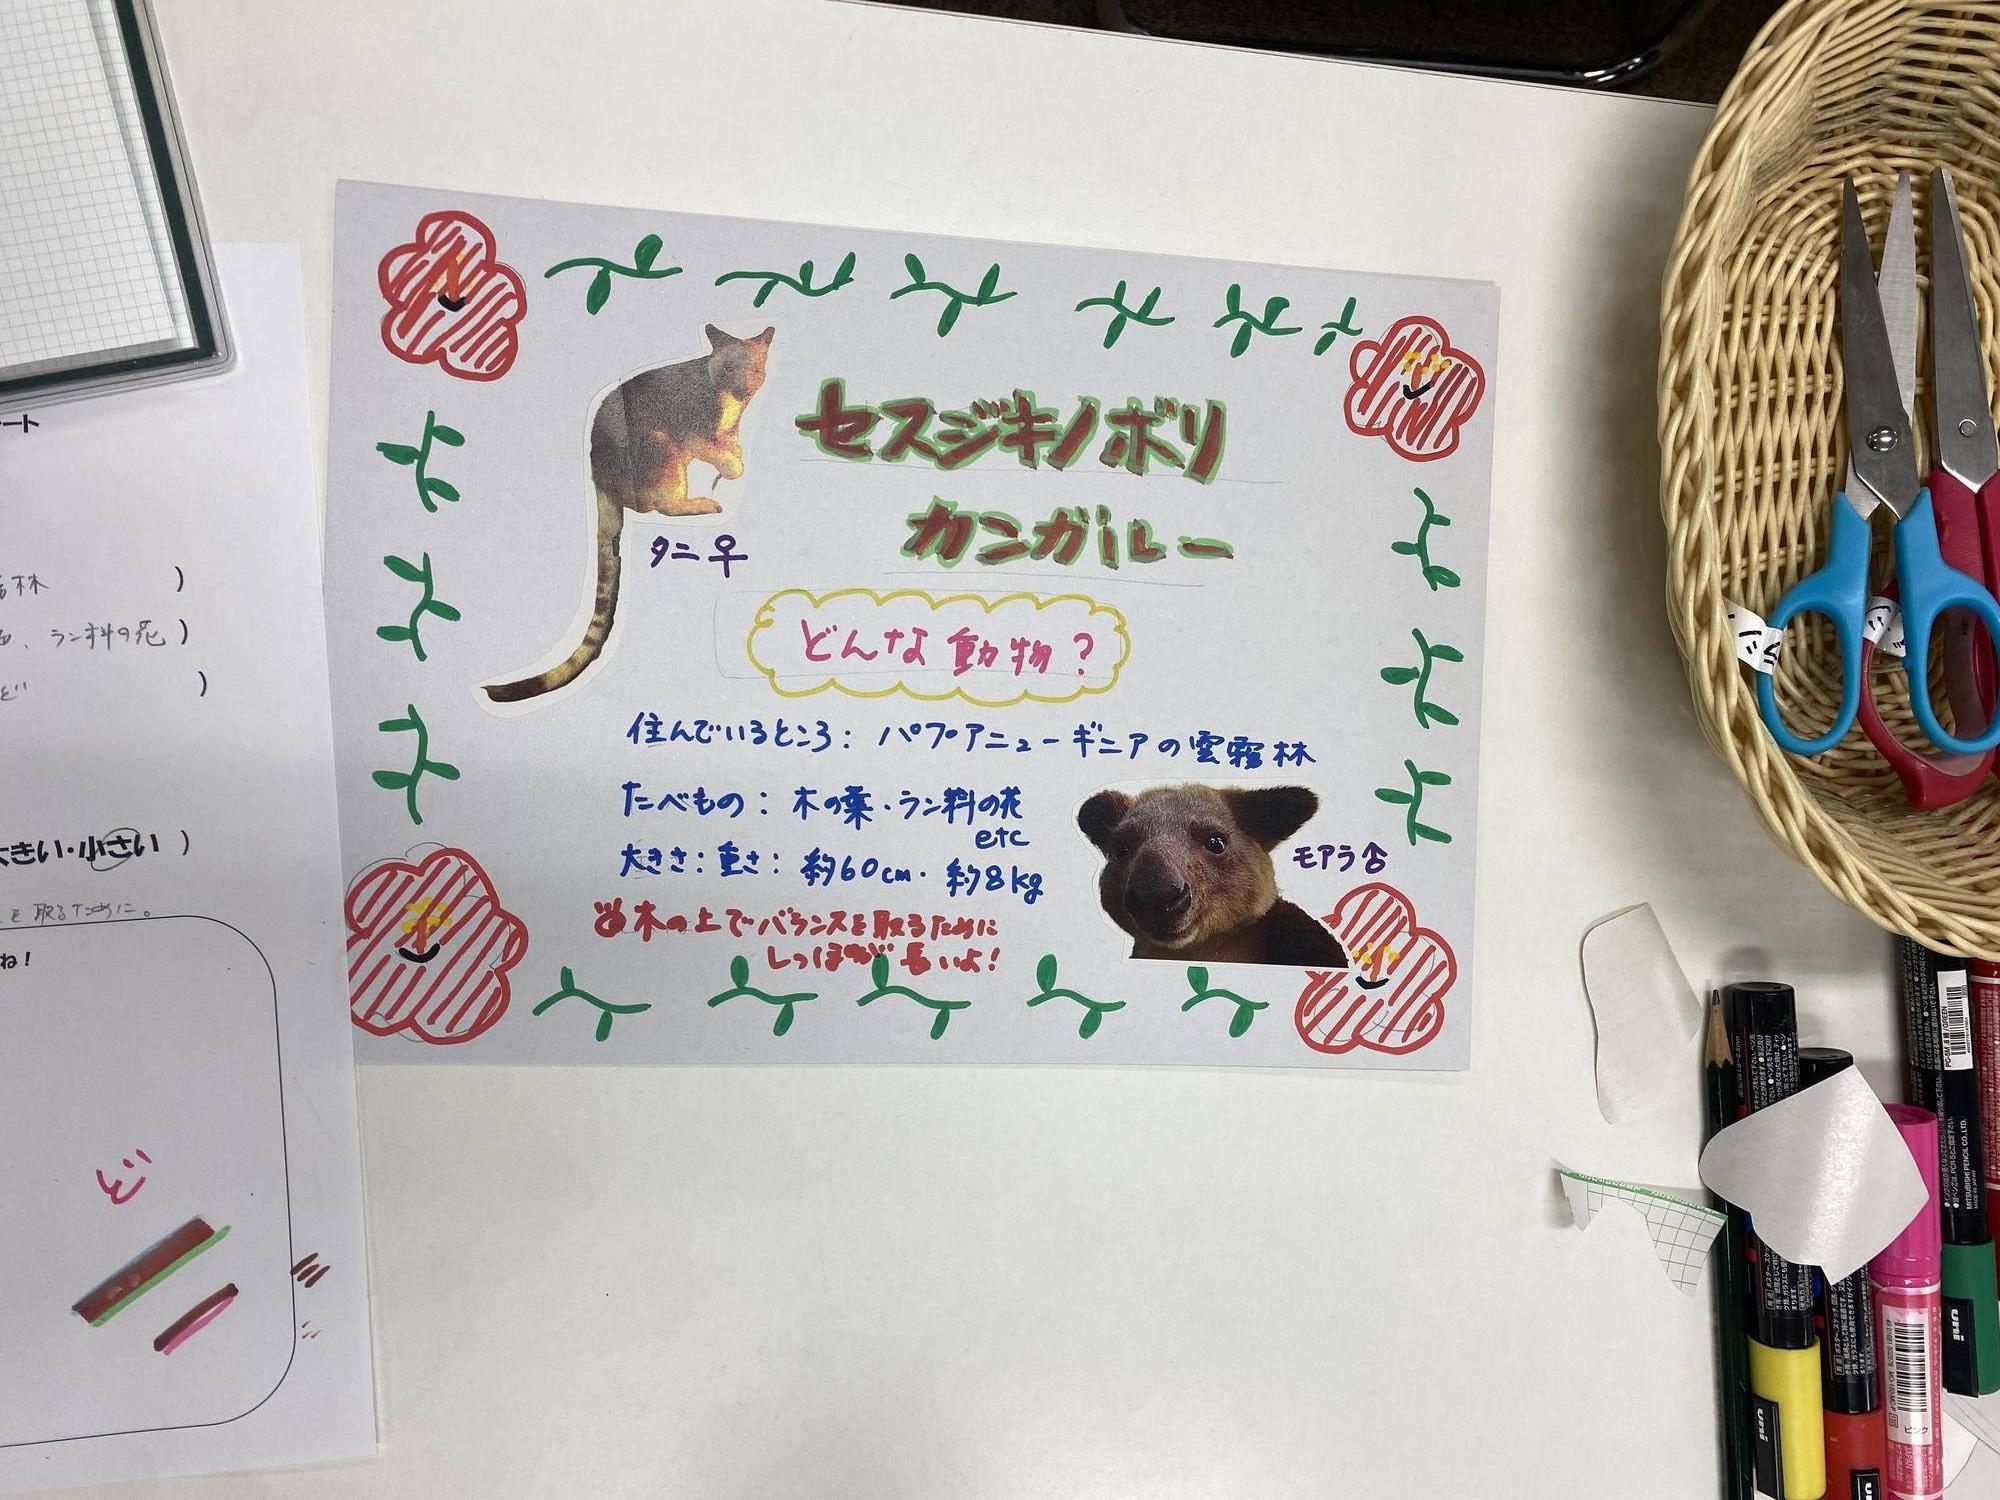 セスジキノボリ
カンガルー
タニ♀
どんな動物?
住んでいるところ: パプアニューギニアの雲霧林
たべもの: 木の葉・ラン科の花
etc
大きさ:重さ: 約60cm・約8kg
木の上でバランスを取るために
しっぽが長いよ!
モアラ♂
ート
林 )
、ラン科の花 )
ど )
大きい・小さい )
を取るために。
ね!
ど
uni
uni
uni
ピンク
MITSUBISHI PENCIL CO.,LTD.